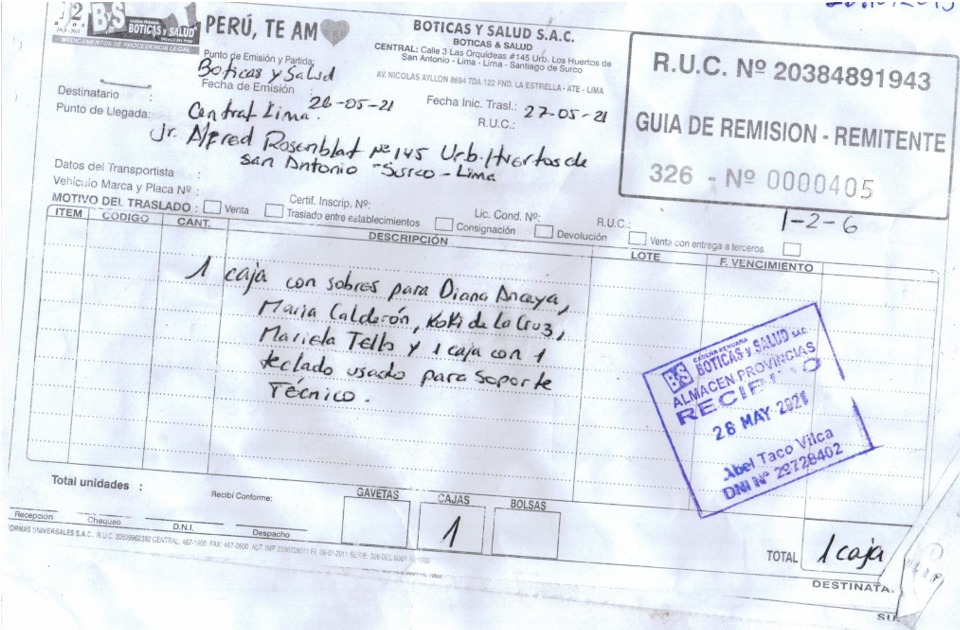 B·S BOTICAS y SALUD
MEDICAMENTOS DE PROCEDENCIA LEGAL
PERÚ, TE AM
BOTICAS Y SALUD S.A.C.
BOTICAS & SALUD
CENTRAL: Calle 3 Las Orquídeas #145 Urb. Los Huertos de
San Antonio - Lima - Lima - Santiago de Surco
AV. NICOLAS AYLLON 8694 TDA.122 FND. LA ESTRELLA - ATE - LIMA
R.U.C. Nº 20384891943
GUIA DE REMISION - REMITENTE
326 - Nº 0000405
Punto de Emisión y Partida:
Boticas y Salud
Fecha de Emisión : 26-05-21
Fecha Inic. Trasl.: 27-05-21
Destinatario : Central Lima.
R.U.C.:
Punto de Llegada: Jr. Alfred Rosenblat Nº 145 Urb. Huertos de
San Antonio - Surco - Lima
Datos del Transportista :
Vehículo Marca y Placa Nº :
Certif. Inscrip. Nº:
Lic. Cond. Nº:
R.U.C.:
1-2-6
MOTIVO DEL TRASLADO : Venta Traslado entre establecimientos Consignación Devolución Venta con entrega a terceros
ITEM CODIGO CANT. DESCRIPCIÓN LOTE F. VENCIMIENTO
1 caja con sobres para Diana Ancaya,
Maria Calderón, Koki de La Cruz,
Mariela Tello y 1 caja con 1
teclado usado para soporte
Técnico.
CADENA PERUANA
BS BOTICAS y SALUD S.A.C.
ALMACEN PROVINCIAS
RECIBIDO
26 MAY 2021
Abel Taco Vilca
DNI Nº 29728402
Total unidades :
Recibí Conforme:
GAVETAS CAJAS BOLSAS
1
Recepción Chequeo D.N.I. Despacho
TOTAL 1 caja
DESTINATA.
SU